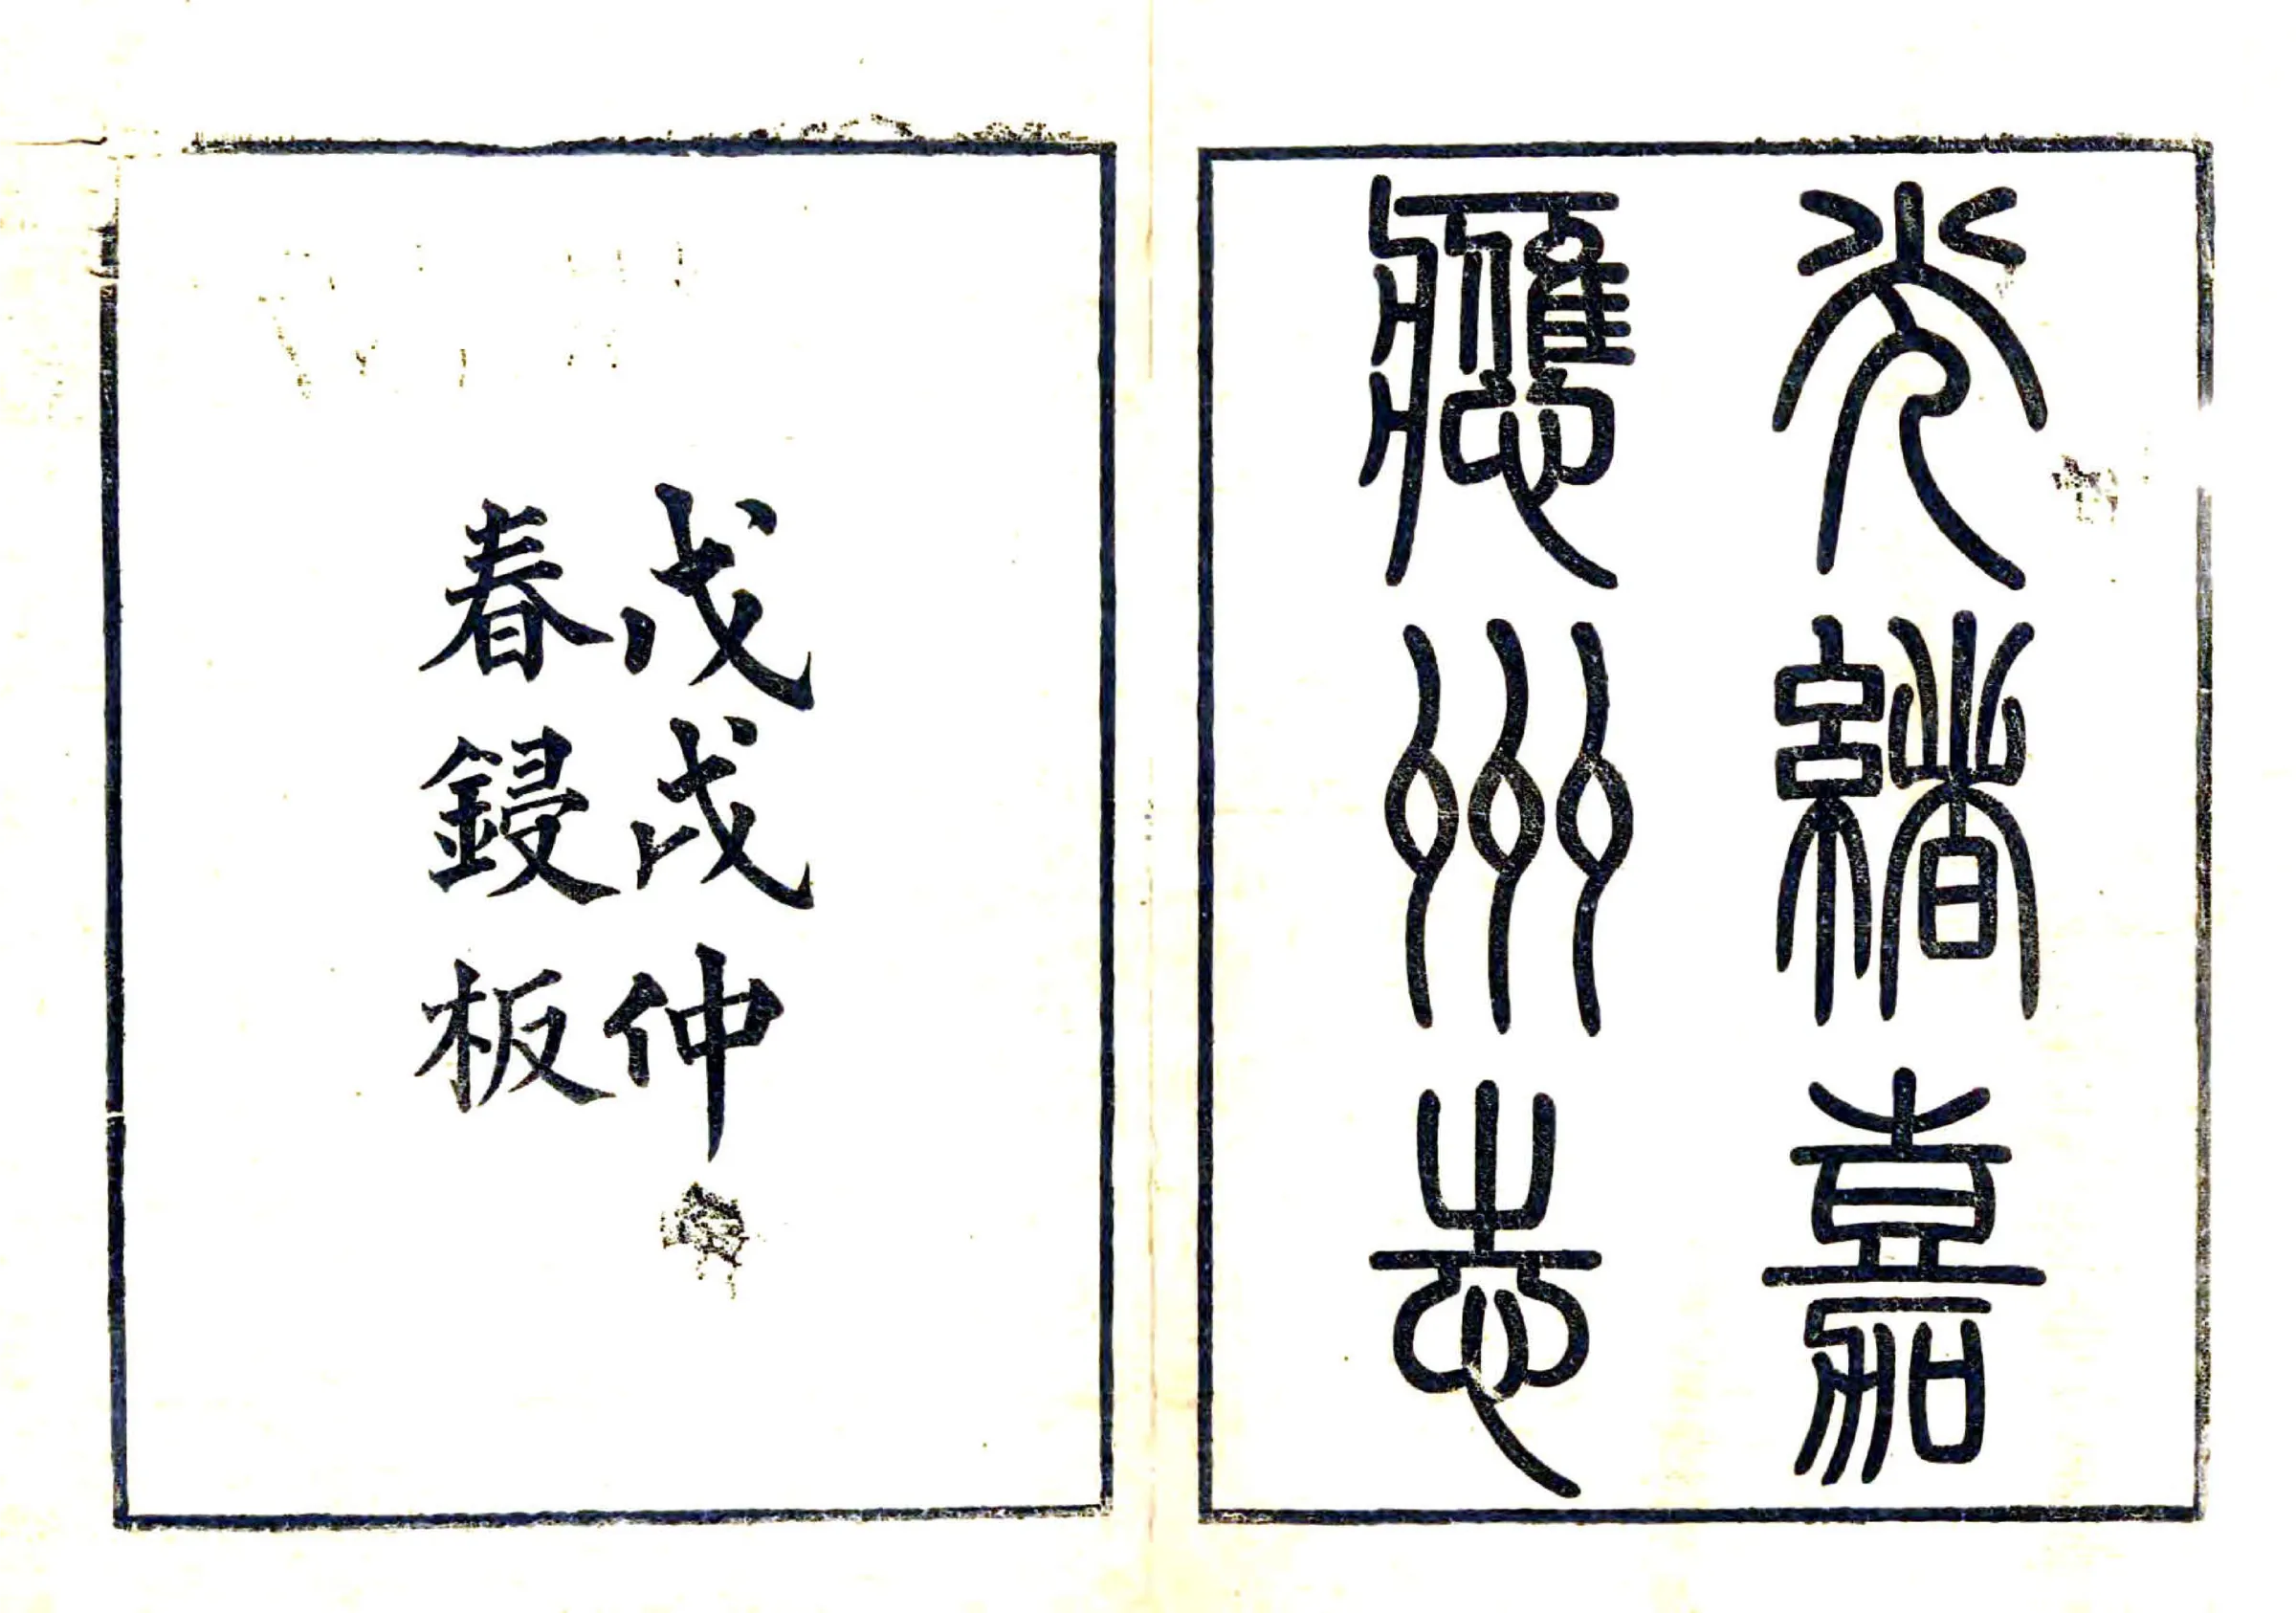 光緒嘉
應州志
戊戌仲
春鋟板